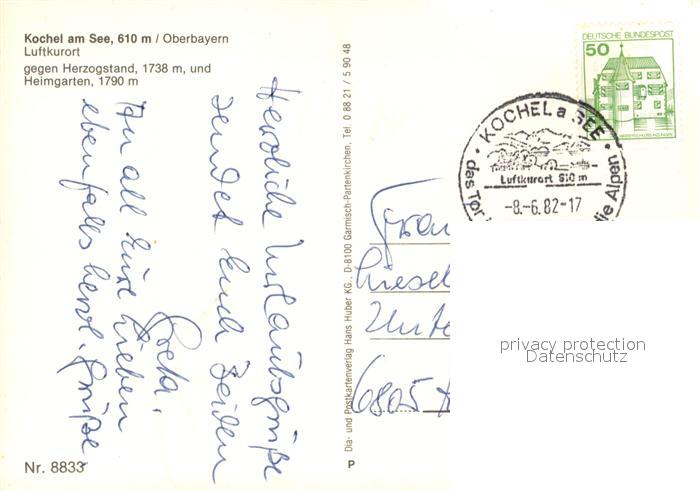 Kochel am See, 610 m / Oberbayern
Luftkurort
gegen Herzogstand, 1738 m, und
Heimgarten, 1790 m
Herzliche Urlaubsgrüße
sendet Euch beiden
Greta.
An all Eure Lieben
ebenfalls herzl. Grüße
Nr. 8833
Dia- und Postkartenverlag Hans Huber KG., D-8100 Garmisch-Partenkirchen, Tel. 0 88 21 / 5 90 48
P
DEUTSCHE BUNDESPOST
50
· KOCHEL a SEE ·
Luftkurort 610 m
-8.-6.82-17
das Tor
die Alpen
Frau
Liesel
Unte
6805
privacy protection
Datenschutz